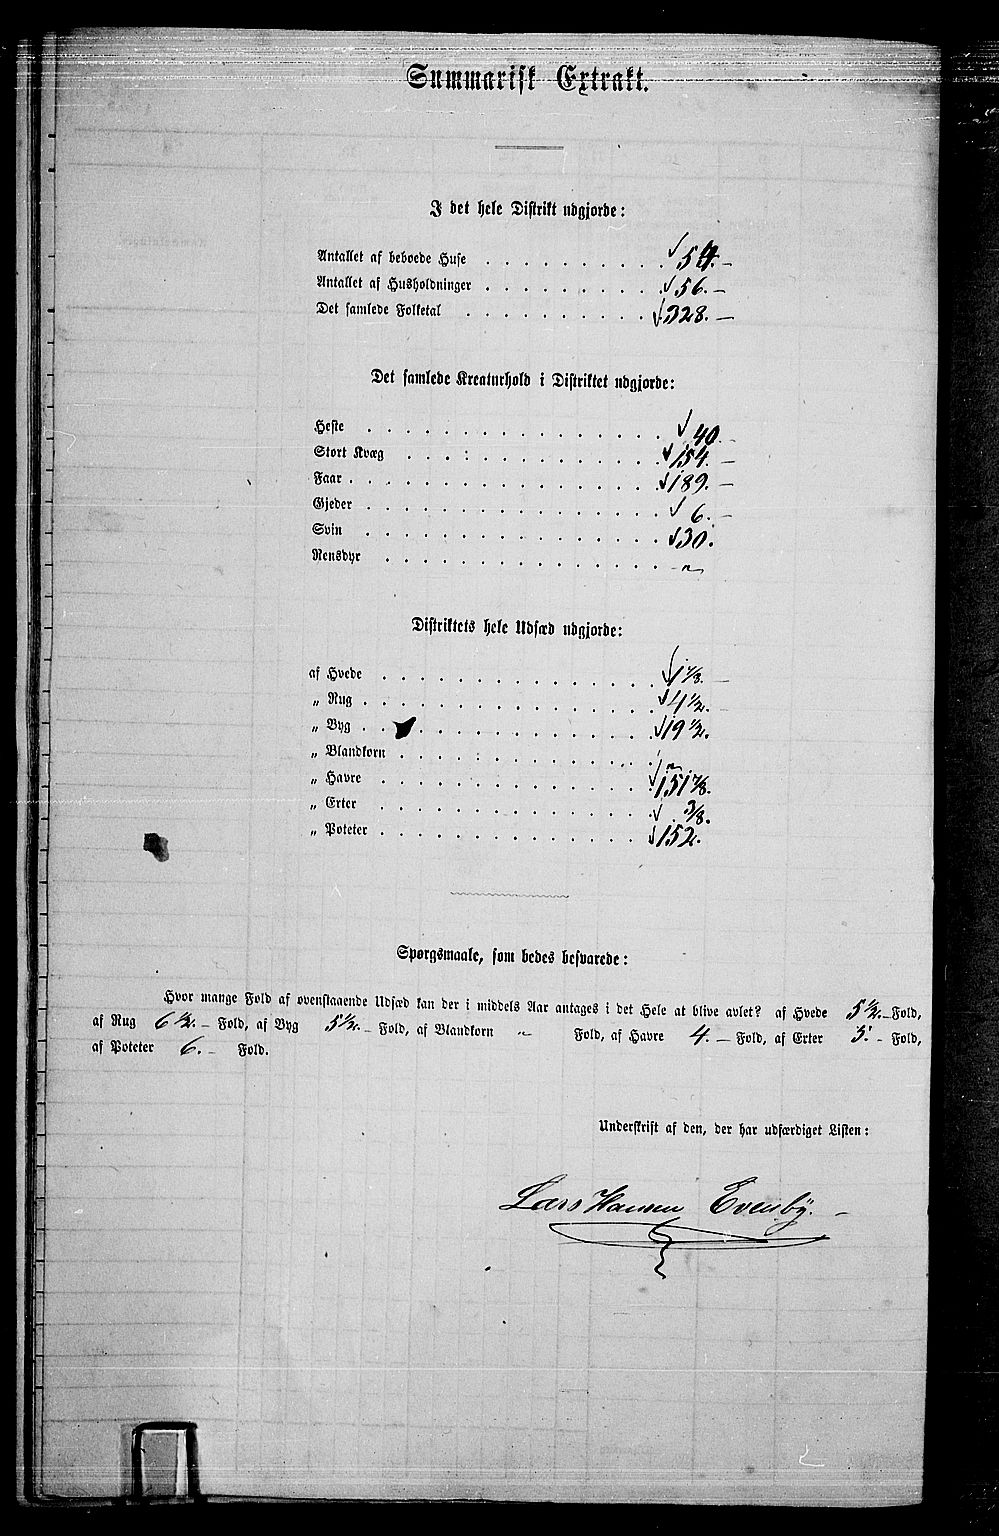 Summarisk Extrakt.
I det hele Distrikt udgjorde:
Antallet af beboede Huse . . . . . . . . . . 54. –
Antallet af Husholdninger . . . . . . . . . . 56. –
Det samlede Folketal . . . . . . . . . . 328. –
Det samlede Kreaturhold i Distriktet udgjorde:
Heste . . . . . . . . . . 40. –
Stort Kvæg . . . . . . . . . . 154. –
Faar . . . . . . . . . . 189. –
Gjeder . . . . . . . . . . 6. –
Svin . . . . . . . . . . 30.
Rensdyr . . . . . . . . . . „
Distriktets hele Udsæd udgjorde:
af Hvede . . . . . . . . . . –
„ Rug . . . . . . . . . . 4 1/2.
„ Byg . . . . . . . . . . 19 1/2.
„ Blandkorn . . . . . . . . . . „
„ Havre . . . . . . . . . . 151 7/8.
„ Erter . . . . . . . . . . 3/8.
„ Poteter . . . . . . . . . . 152.
Spørgsmaale, som bedes besvarede:
Hvor mange Fold af ovenstaaende Udsæd kan der i middels Aar antages i det Hele at blive avlet? af Hvede 5 1/2. – Fold,
af Rug 6 1/2. – Fold, af Byg 5 1/2. – Fold, af Blandkorn „ Fold, af Havre 4. – Fold, af Erter – Fold,
af Poteter 6. – Fold.
Underskrift af den, der har udfærdiget Listen:
Lars Hansen Evenby. –